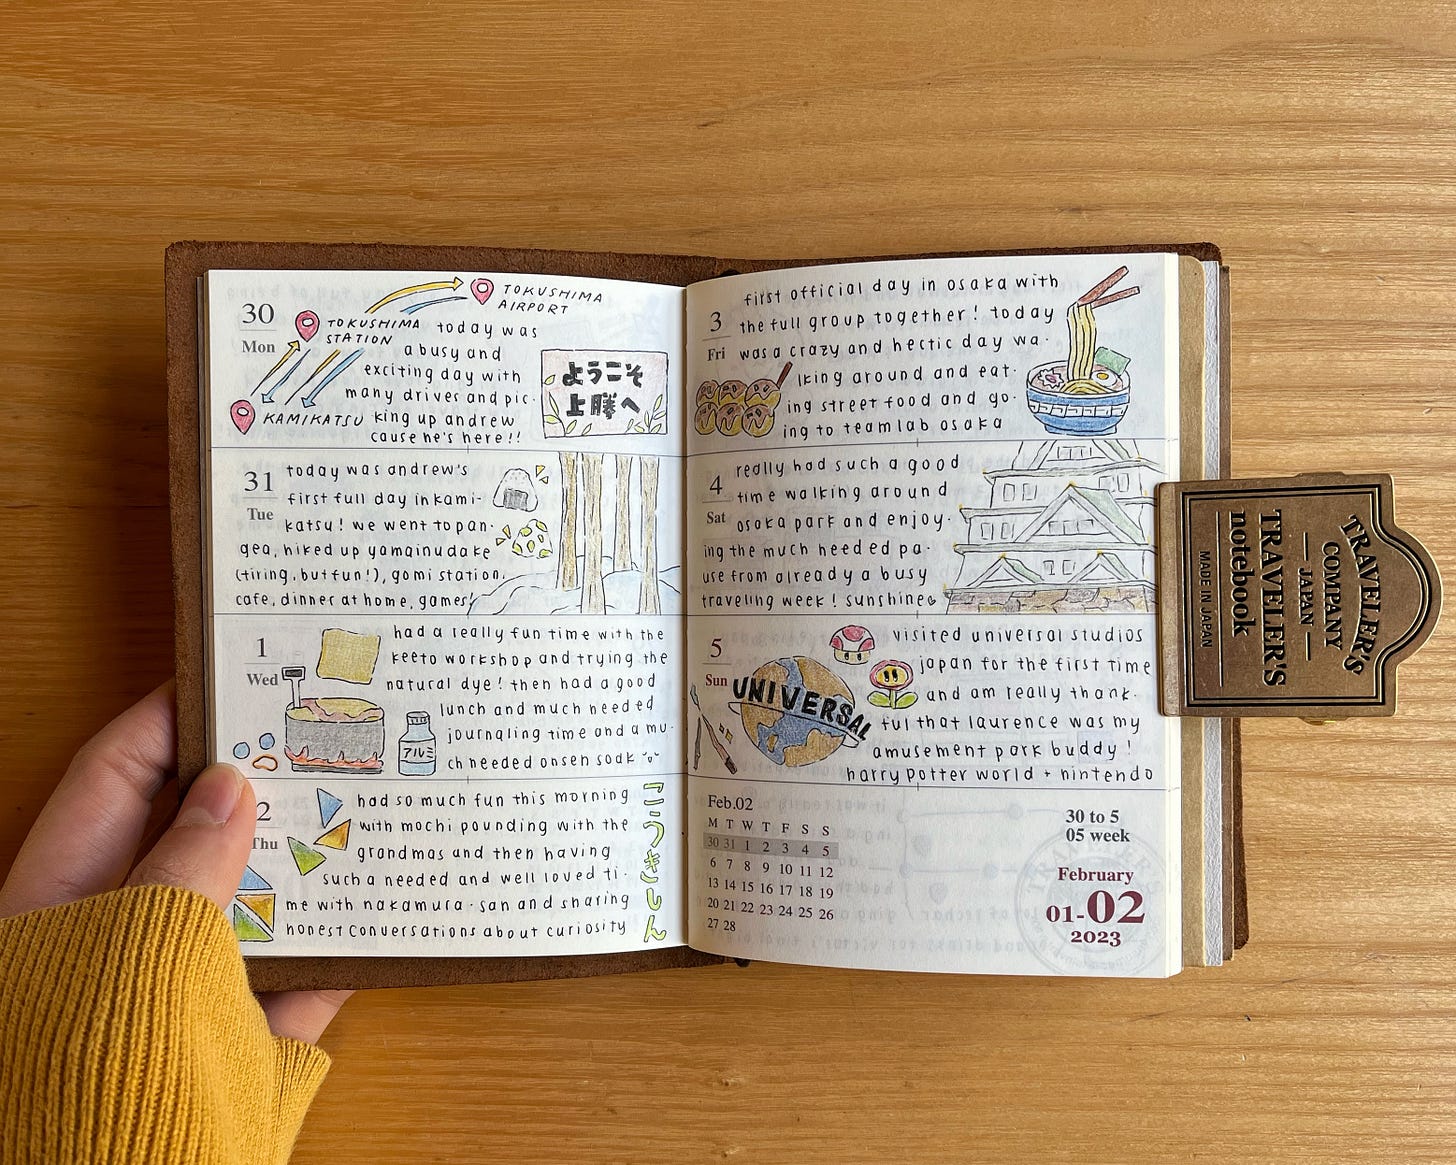 30
Mon
TOKUSHIMA
AIRPORT
TOKUSHIMA
STATION
KAMIKATSU
today was
a busy and
exciting day with
many drives and pic-
king up andrew
cause he's here!!
ようこそ
上勝へ
31
Tue
today was andrew's
first full day in kami-
katsu! we went to pan-
gea, hiked up yamainudake
(tiring, but fun!), gomi station,
cafe, dinner at home, games!
1
Wed
had a really fun time with the
keeto workshop and trying the
natural dye! then had a good
lunch and much needed
journaling time and a mu-
ch needed onsen soak
アルミ
2
Thu
had so much fun this morning
with mochi pounding with the
grandmas and then having
such a needed and well loved ti-
me with nakamura-san and sharing
honest conversations about curiosity
こうきしん
3
Fri
first official day in osaka with
the full group together! today
was a crazy and hectic day wa-
lking around and eat-
ing street food and go-
ing to teamlab osaka
4
Sat
really had such a good
time walking around
osaka park and enjoy-
ing the much needed pa-
use from already a busy
traveling week! sunshine
5
Sun
UNIVERSAL
visited universal studios
japan for the first time
and am really thank-
ful that laurence was my
amusement park buddy!
harry potter world + nintendo
Feb.02
M T W T F S S
30 31 1 2 3 4 5
6 7 8 9 10 11 12
13 14 15 16 17 18 19
20 21 22 23 24 25 26
27 28
30 to 5
05 week
February
01-02
2023
TRAVELER'S
COMPANY
— JAPAN —
TRAVELER'S
notebook
MADE IN JAPAN